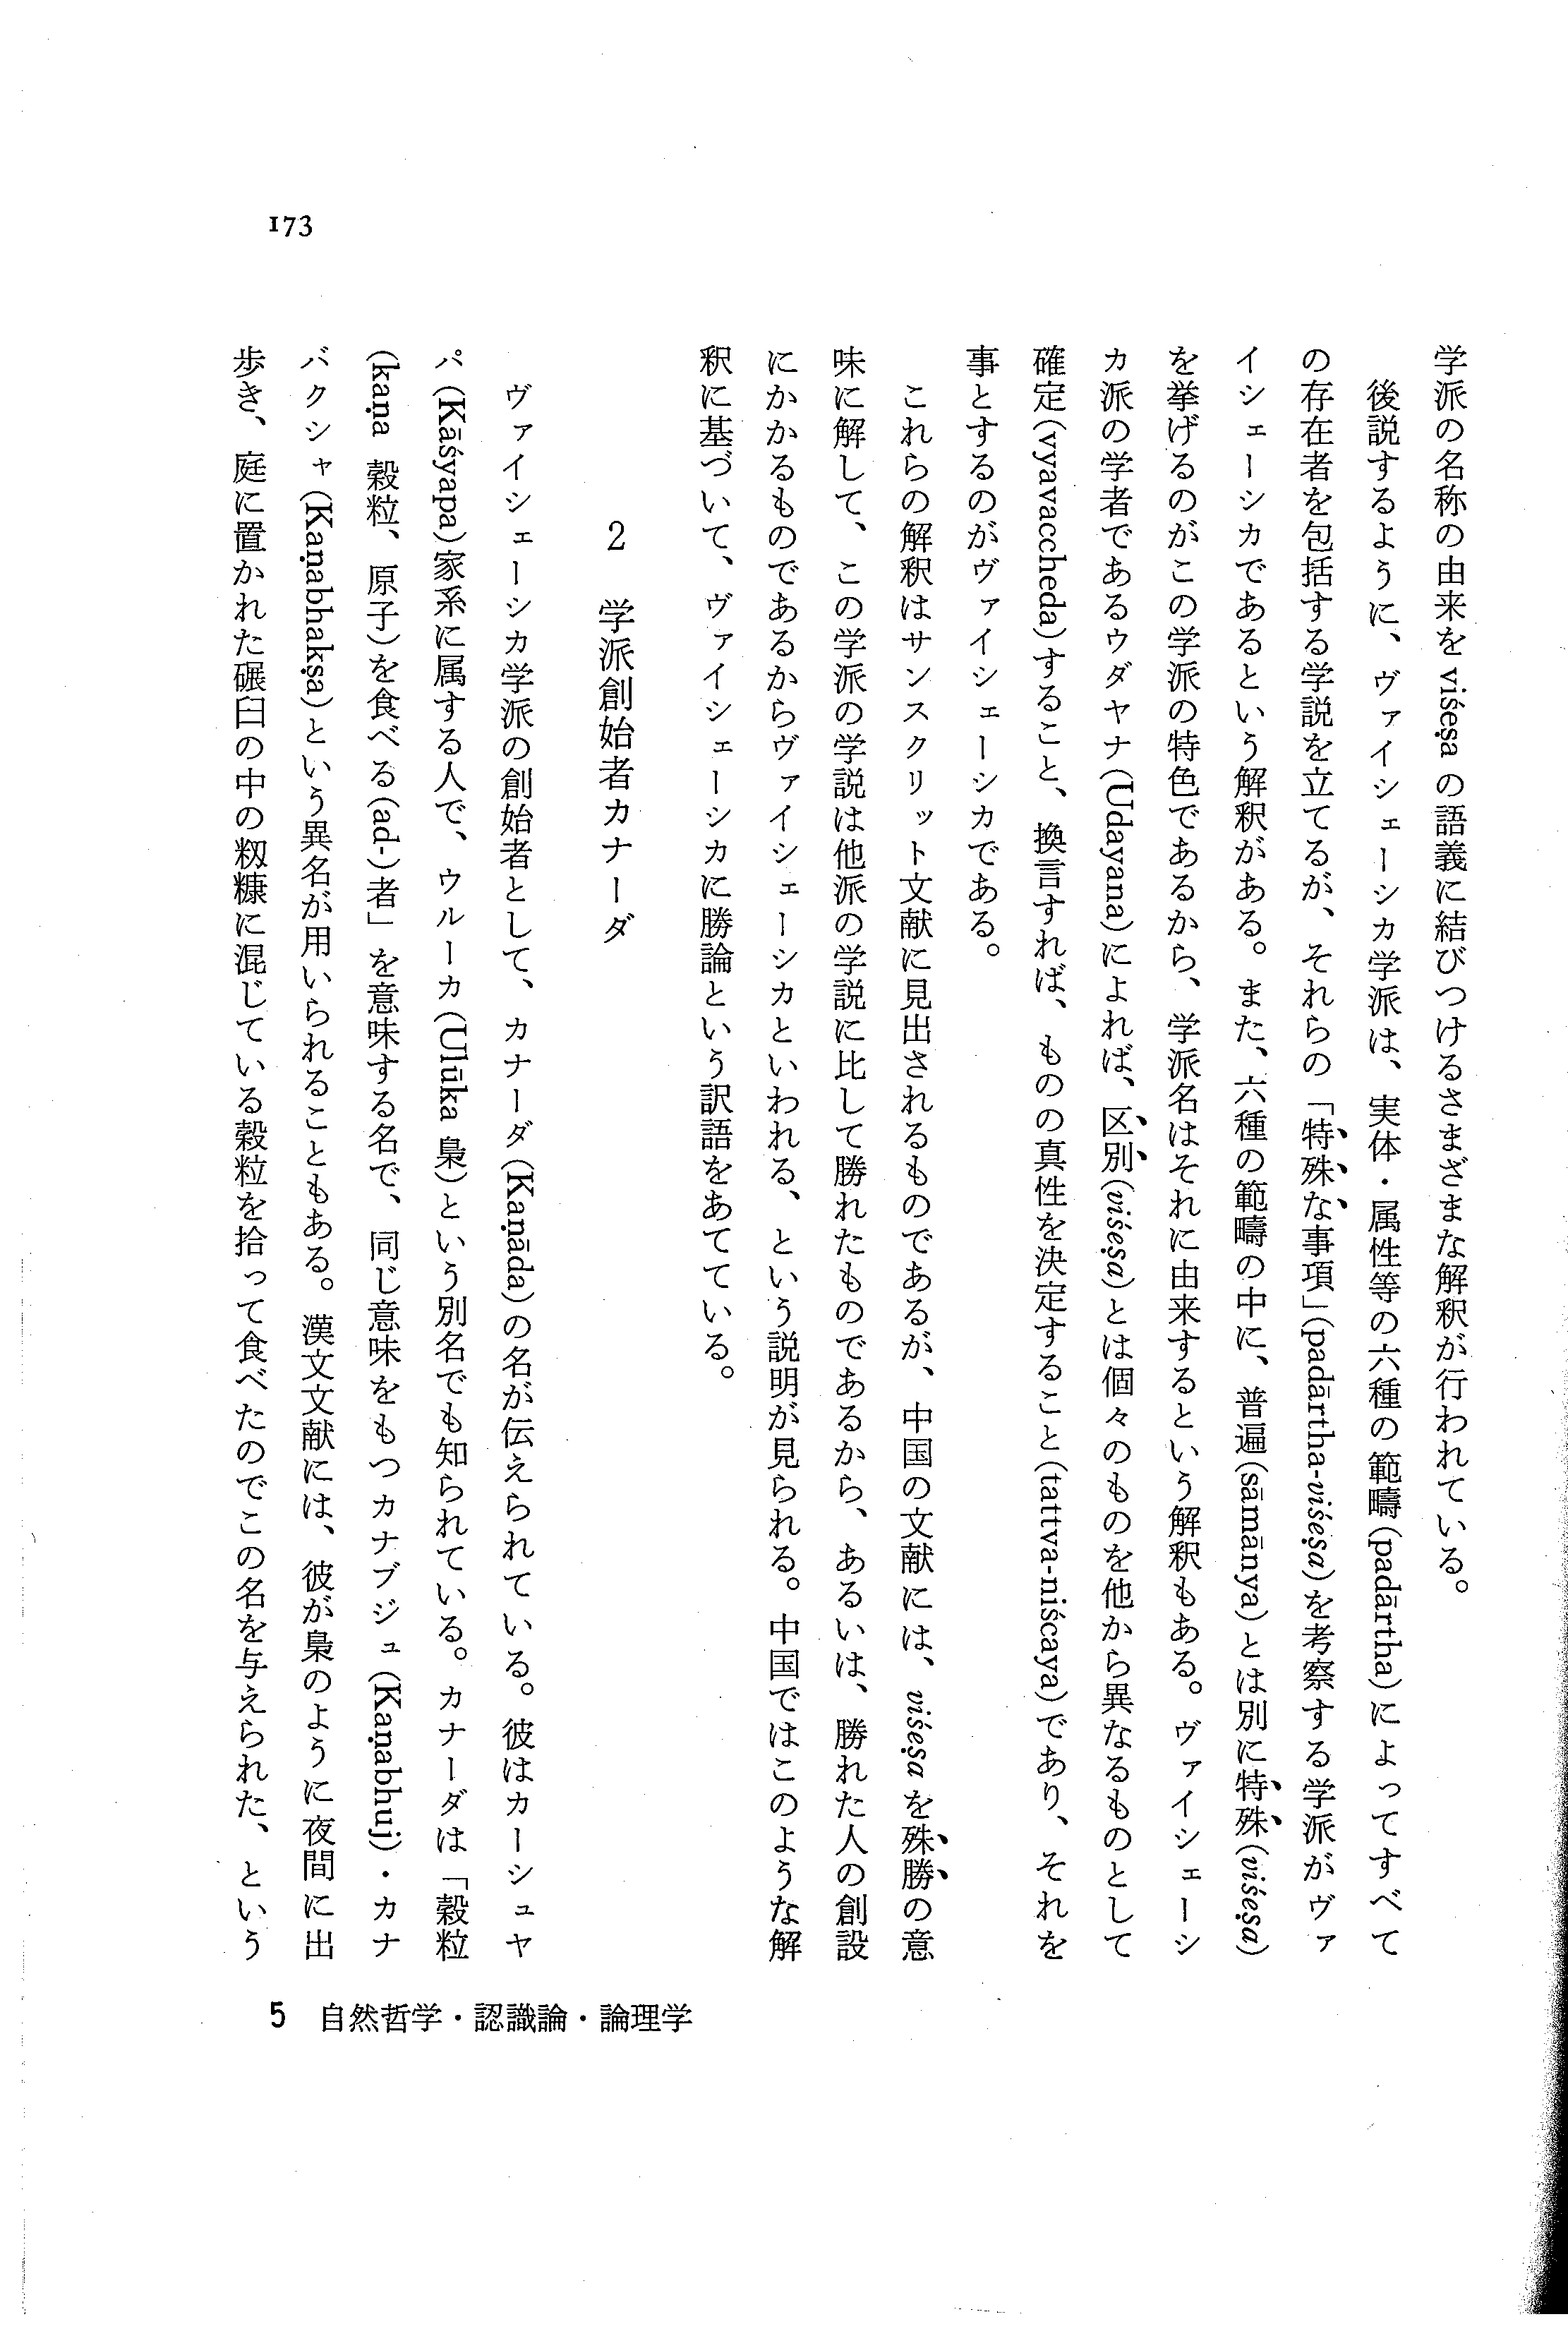 173
学派の名称の由来を viśeṣa の語義に結びつけるさまざまな解釈が行われている。
後説するように、ヴァイシェーシカ学派は、実体・属性等の六種の範疇(padārtha)によってすべて
の存在者を包括する学説を立てるが、それらの「特殊な事項」(padārtha-viśeṣa)を考察する学派がヴァ
イシェーシカであるという解釈がある。また、六種の範疇の中に、普遍(sāmānya)とは別に特殊(viśeṣa)
を挙げるのがこの学派の特色であるから、学派名はそれに由来するという解釈もある。ヴァイシェーシ
カ派の学者であるウダヤナ(Udayana)によれば、区別(viśeṣa)とは個々のものを他から異なるものとして
確定(vyavaccheda)すること、換言すれば、ものの真性を決定すること(tattva-niścaya)であり、それを
事とするのがヴァイシェーシカである。
これらの解釈はサンスクリット文献に見出されるものであるが、中国の文献には、viśeṣa を殊勝の意
味に解して、この学派の学説は他派の学説に比して勝れたものであるから、あるいは、勝れた人の創設
にかかるものであるからヴァイシェーシカといわれる、という説明が見られる。中国ではこのような解
釈に基づいて、ヴァイシェーシカに勝論という訳語をあてている。
2 学派創始者カナーダ
ヴァイシェーシカ学派の創始者として、カナーダ(Kaṇāda)の名が伝えられている。彼はカーシュヤ
パ(Kāśyapa)家系に属する人で、ウルーカ(Ulūka 梟)という別名でも知られている。カナーダは「穀粒
(kaṇa 穀粒、原子)を食べる(ad-)者」を意味する名で、同じ意味をもつカナブジュ(Kaṇabhuj)・カナ
バクシャ(Kaṇabhakṣa)という異名が用いられることもある。漢文文献には、彼が梟のように夜間に出
歩き、庭に置かれた碾臼の中の籾糠に混じている穀粒を拾って食べたのでこの名を与えられた、という
5 自然哲学・認識論・論理学